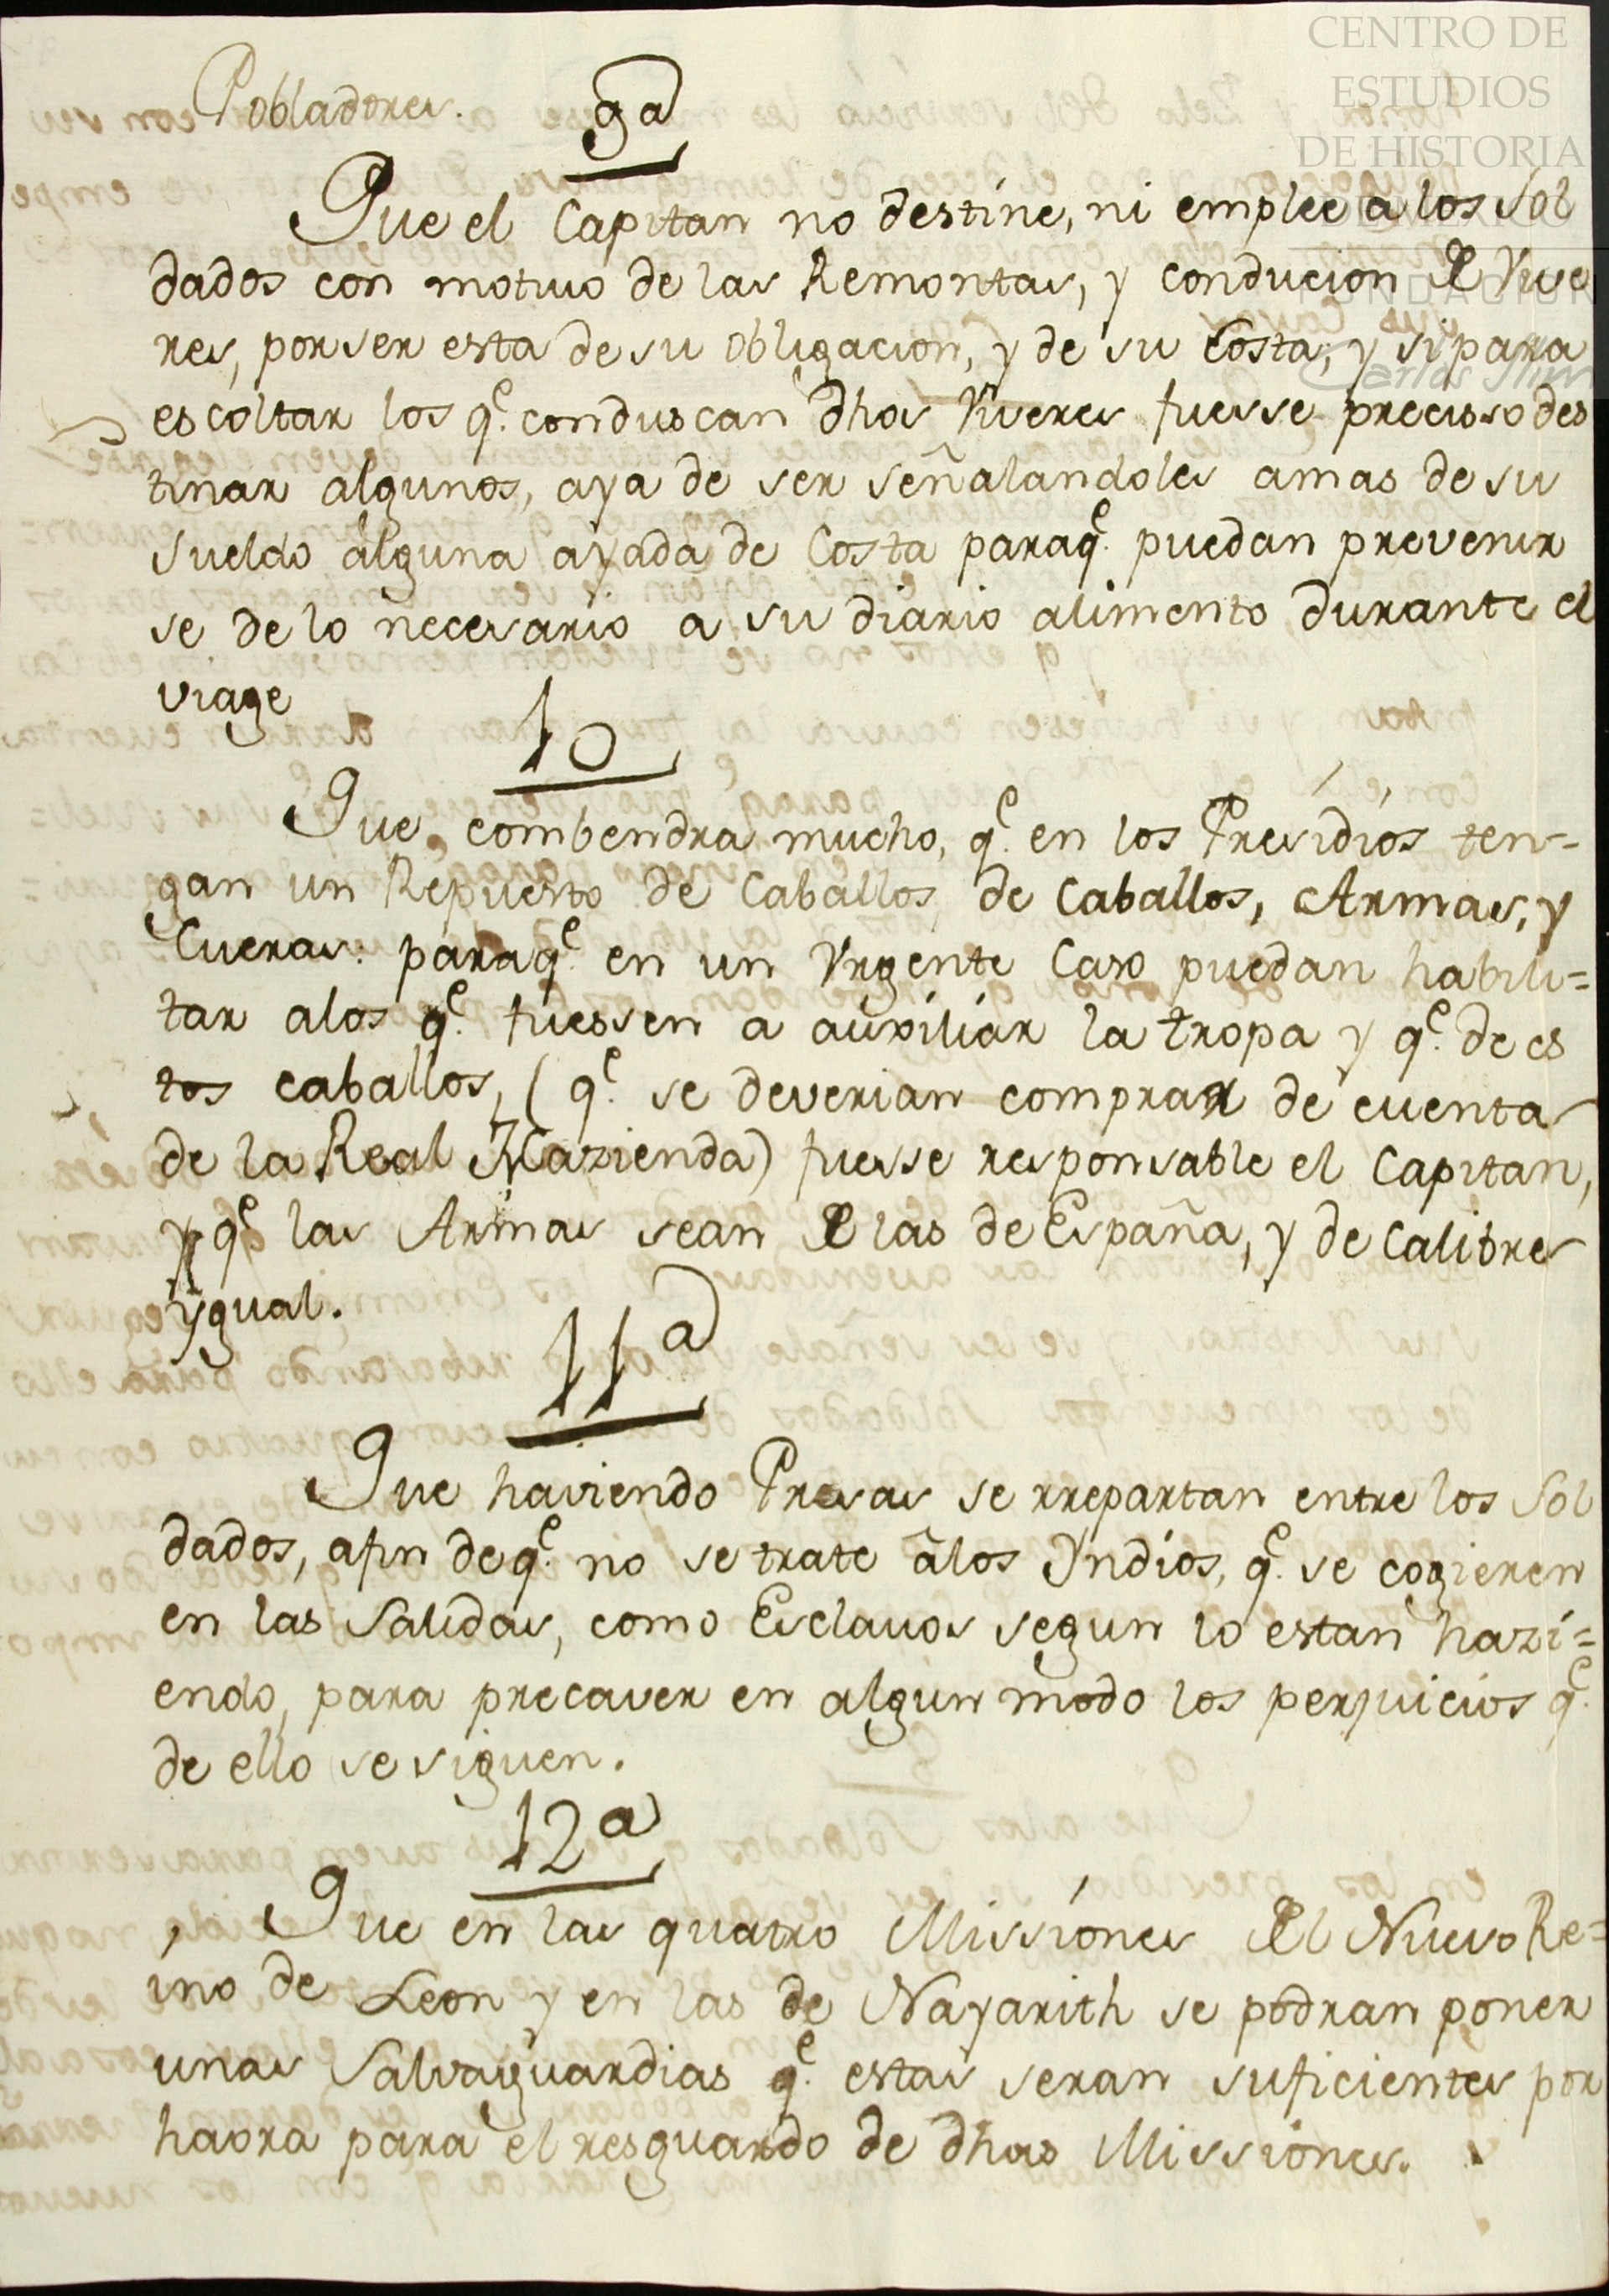 CENTRO DE
ESTUDIOS
DE HISTORIA
DE MÉXICO
FUNDACIÓN
Carlos Slim
Pobladores.
9a
Que el Capitan no destine, ni emplee a los Sol
dados con motivo de las Remontas, y conducion de Vive
res, por ser esta de su obligacion, y de su Costa, y si para
escoltar los q.e conduscan dhos Viveres fuesse precisso des
tinar algunos, aya de ser señalandoles amas de su
Sueldo alguna ayada de Costa paraq.e puedan prevenir
se de lo necesario a su diario alimento durante el
viage
10
Que combendra mucho, q.e en los Presidios ten-
gan un Repuesto de Caballos de Caballos, Armas, y
Cueras: paraq.e en un Vrgente Caso puedan habili=
tar alos q.e fuessen a auxiliar la tropa y q.e de es
tos caballos, (q.e se deverian comprar de cuenta
de la Real Hazienda) fuesse responsable el Capitan,
y q.e las Armas sean de las de España, y de Calibre
ygual.
11a
Que haviendo Presas se rrepartan entre los Sol
dados, afin de q.e no se trate âlos Yndios, q.e se cogieren
en las Salidas, como Esclavos segun lo estan hazi=
endo, para precaver en algun modo los perjuicios q.e
de ello se siguen.
12a
Que en las quatro Missiones del Nuevo Re=
ino de Leon y en las de Nayarith se podran poner
unas Salvaguardias q.e estas seran suficientes por
haora para el resguardo de dhas Missiones.